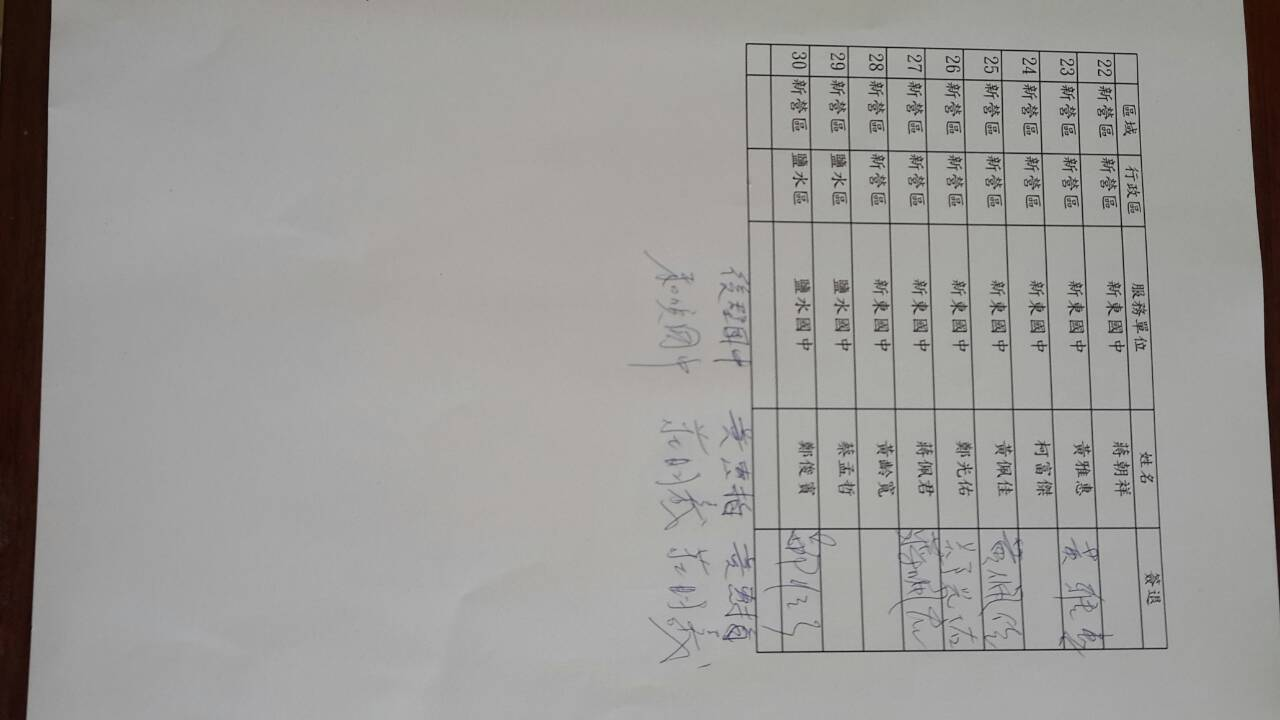 區域 行政區 服務單位 姓名 簽退
22 新營區 新營區 新東國中 蔣朝祥
23 新營區 新營區 新東國中 黃雅惠 黃雅惠
24 新營區 新營區 新東國中 柯富傑
25 新營區 新營區 新東國中 黃佩佳 黃佩佳
26 新營區 新營區 新東國中 鄭光佑 鄭光佑
27 新營區 新營區 新東國中 蔣佩君 蔣佩君
28 新營區 新營區 新東國中 黃齡寬
29 新營區 鹽水區 鹽水國中 蔡孟哲
30 新營區 鹽水區 鹽水國中 鄭俊賓
後壁國中
國中